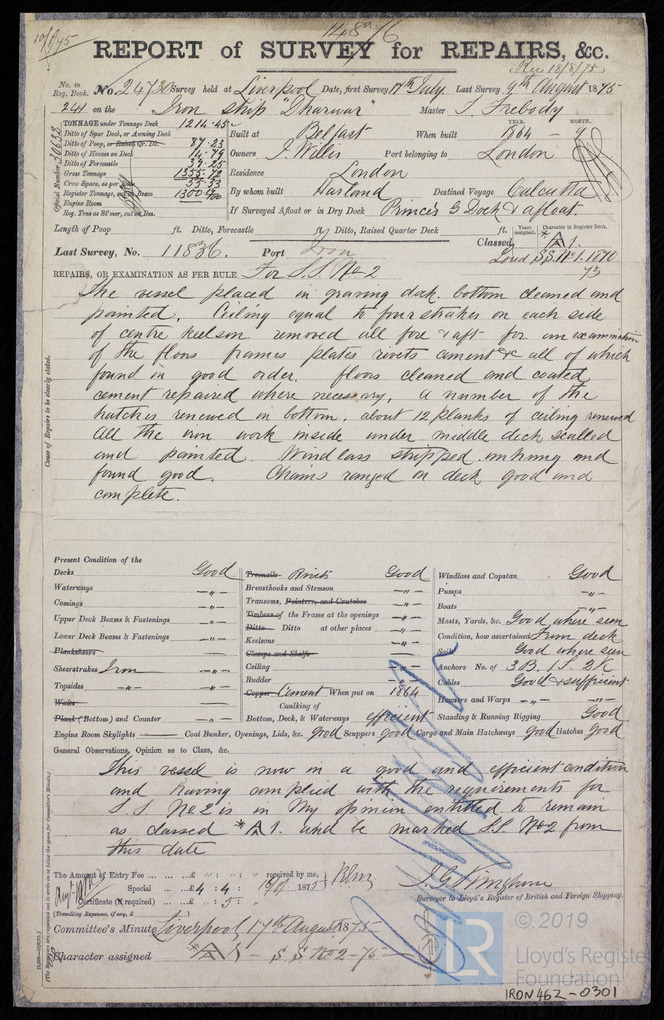 10/8/75
14876
REPORT of SURVEY for REPAIRS, &c.
18/8/75
No. in Reg. Book. No. 24730 Survey held at Liverpool Date, first Survey 17th July Last Survey 9th August 1875
241 on the Iron Ship "Dharwar" Master T. Freebody
TONNAGE under Tonnage Deck 1214.45
Ditto of Spar Deck, or Awning Deck
Ditto of Poop, or Raised Qr. Dk. 87.23
Ditto of Houses on Deck 14.79
Ditto of Forecastle 39.25
Gross Tonnage 1355.72
Crew Space, as per 55.53
Register Tonnage, 1300
Engine Room
Reg. Tons as St'mer, cut on Bm.
Official Number
Built at Belfast When built YEAR. 1864 MONTH. 9
Owners J. Willis Port belonging to London
Residence London
By whom built Harland Destined Voyage Calcutta
If Surveyed Afloat or in Dry Dock Princes G Dock & afloat.
Length of Poop ft. Ditto, Forecastle ft. Ditto, Raised Quarter Deck ft.
Years assigned. Character in Register Book.
Last Survey, No. 11836. Port Classed, *A1.
S.S. No 1. 1870
73
REPAIRS, OR EXAMINATION AS PER RULE For S.S. No 2
Cause of Repairs to be clearly stated.
The vessel placed in graving dock. bottom cleaned and
painted. Ceiling equal to four strakes on each side
of centre keelson removed all fore & aft for an examination
of the floors frames plates rivets cement &c all of which
found in good order. floors cleaned and coated
cement repaired where necessary, a number of the
hatches renewed in bottom. about 12 planks of ceiling renewed
All the iron work inside under middle deck scalled
and painted. Windlass stripped, unhung and
found good. Chains ranged on deck good and
complete.
Present Condition of the
Decks Good
Waterways -"-
Comings -"-
Upper Deck Beams & Fastenings -"-
Lower Deck Beams & Fastenings -"-
Planksheers
Sheerstrakes Iron -"-
Topsides -"- -"-
Wales
Plank (Bottom) and Counter -"-
Treenails Rivets Good
Breasthooks and Stemson -"-
Transoms, Pointers, and Crutches -"-
Timbers of the Frame at the openings -"-
Ditto Ditto at other places -"-
Keelsons -"-
Clamps and Shelfs
Ceiling -"-
Rudder -"-
Copper Cement When put on 1864
Caulking of
Bottom, Deck, & Waterways efficient
Windlass and Capstan Good
Pumps -"-
Boats -"-
Masts, Yards, &c. Good where seen
Condition, how ascertained From deck
Sails Good where seen
Anchors No. of 3 B. 1 S. 2 K
Cables Good & sufficient
Hawsers and Warps -"- -"-
Standing & Running Rigging Good
Engine Room Skylights Coal Bunker, Openings, Lids, &c. good Scuppers good Cargo and Main Hatchways good Hatches good
General Observations, Opinion as to Class, &c.
This vessel is now in a good and efficient condition
and having complied with the requirements for
S.S. No 2 is in my opinion entitled to remain
as classed *A1. and be marked S.S. No 2 from
this date
The Amount of Entry Fee ... ... £ : : received by me,
Special ... ... £ 4 : 4 : 187
Certificate (if required) ... : 5 :
(Travelling Expenses, if any, £
Surveyor to Lloyd's Register of British and Foreign Shipping.
Committee's Minute Liverpool, 17th August 1875
Character assigned *A1 - S S No 2 - 75
© 2019
LR
Lloyd's Register
Foundation
IRON462-0301